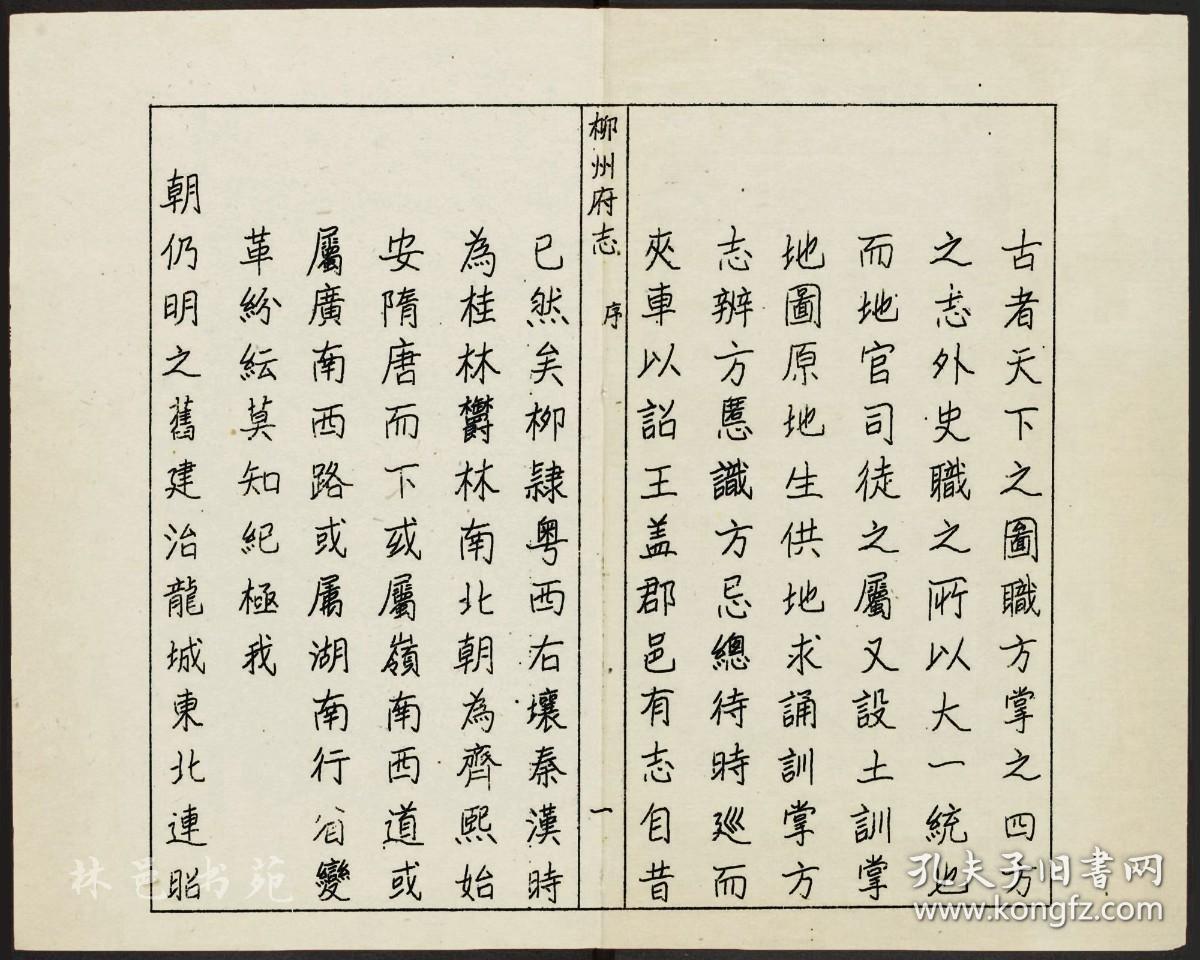 古者天下之圖職方掌之四方
之志外史職之所以大一統也
而地官司徒之屬又設土訓掌
地圖原地生供地求誦訓掌方
志辨方慝識方忌總待時巡而
夾車以詔王盖郡邑有志自昔
柳州府志 序 一
已然矣柳隸粤西右壤秦漢時
為桂林欝林南北朝為齊熙始
安隋唐而下或屬嶺南西道或
屬廣南西路或屬湖南行省變
革紛紜莫知紀極我
朝仍明之舊建治龍城東北連昭
林邑书苑
孔夫子旧书网
www.kongfz.com